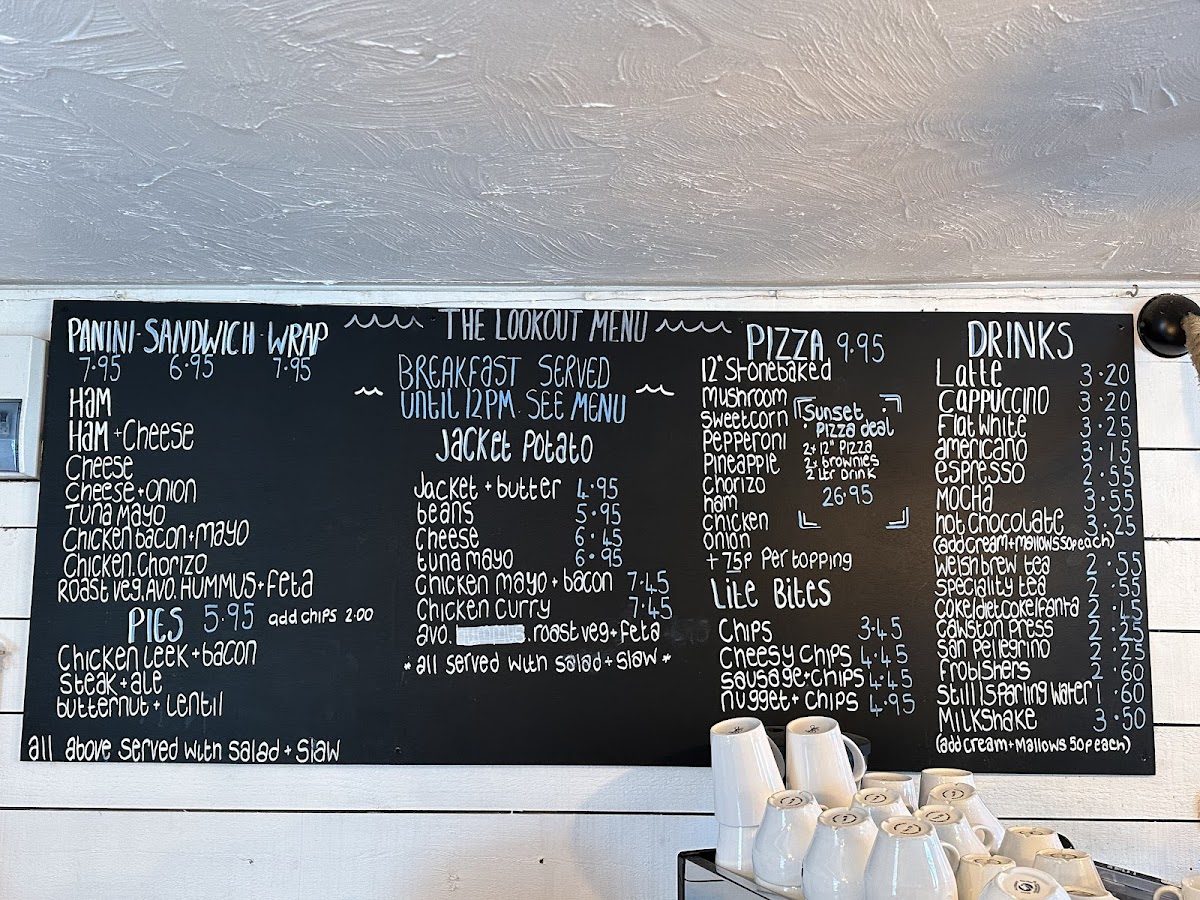 THE LOOKOUT MENU
PANINI · SANDWICH · WRAP
7.95 6.95 7.95
Ham
Ham + Cheese
Cheese
Cheese + onion
Tuna Mayo
Chicken bacon + mayo
Chicken. Chorizo
Roast veg. Avo. Hummus + Feta
PIES 5.95 add chips 2.00
Chicken Leek + bacon
Steak + ale
butternut + Lentil
all above served with salad + slaw
BREAKFAST SERVED
UNTIL 12PM. SEE MENU
Jacket Potato
Jacket + butter 4.95
beans 5.95
cheese 6.45
tuna mayo 6.95
Chicken mayo + bacon 7.45
Chicken Curry 7.45
avo. . roast veg + feta
* all served with salad + slaw *
PIZZA 9.95
12" Stonebaked
mushroom
sweetcorn
Pepperoni
Pineapple
Chorizo
ham
chicken
onion
+ 75p Per topping
Sunset
Pizza deal
2x 12" Pizza
2x brownies
2 Ltr Drink
26.95
Lite Bites
Chips 3.45
Cheesy chips 4.45
sausage + chips 4.45
nugget + chips 4.95
DRINKS
Latte 3.20
Cappuccino 3.20
Flat White 3.25
americano 3.15
espresso 2.55
Mocha 3.55
hot chocolate 3.25
(add cream + mallows 50p each)
Welsh brew tea 2.55
speciality tea 2.55
coke/diet coke/fanta 2.45
cawston press 2.25
san pellegrino 2.25
frobishers 2.60
still/sparling water 1.60
Milkshake 3.50
(add cream + mallows 50p each)